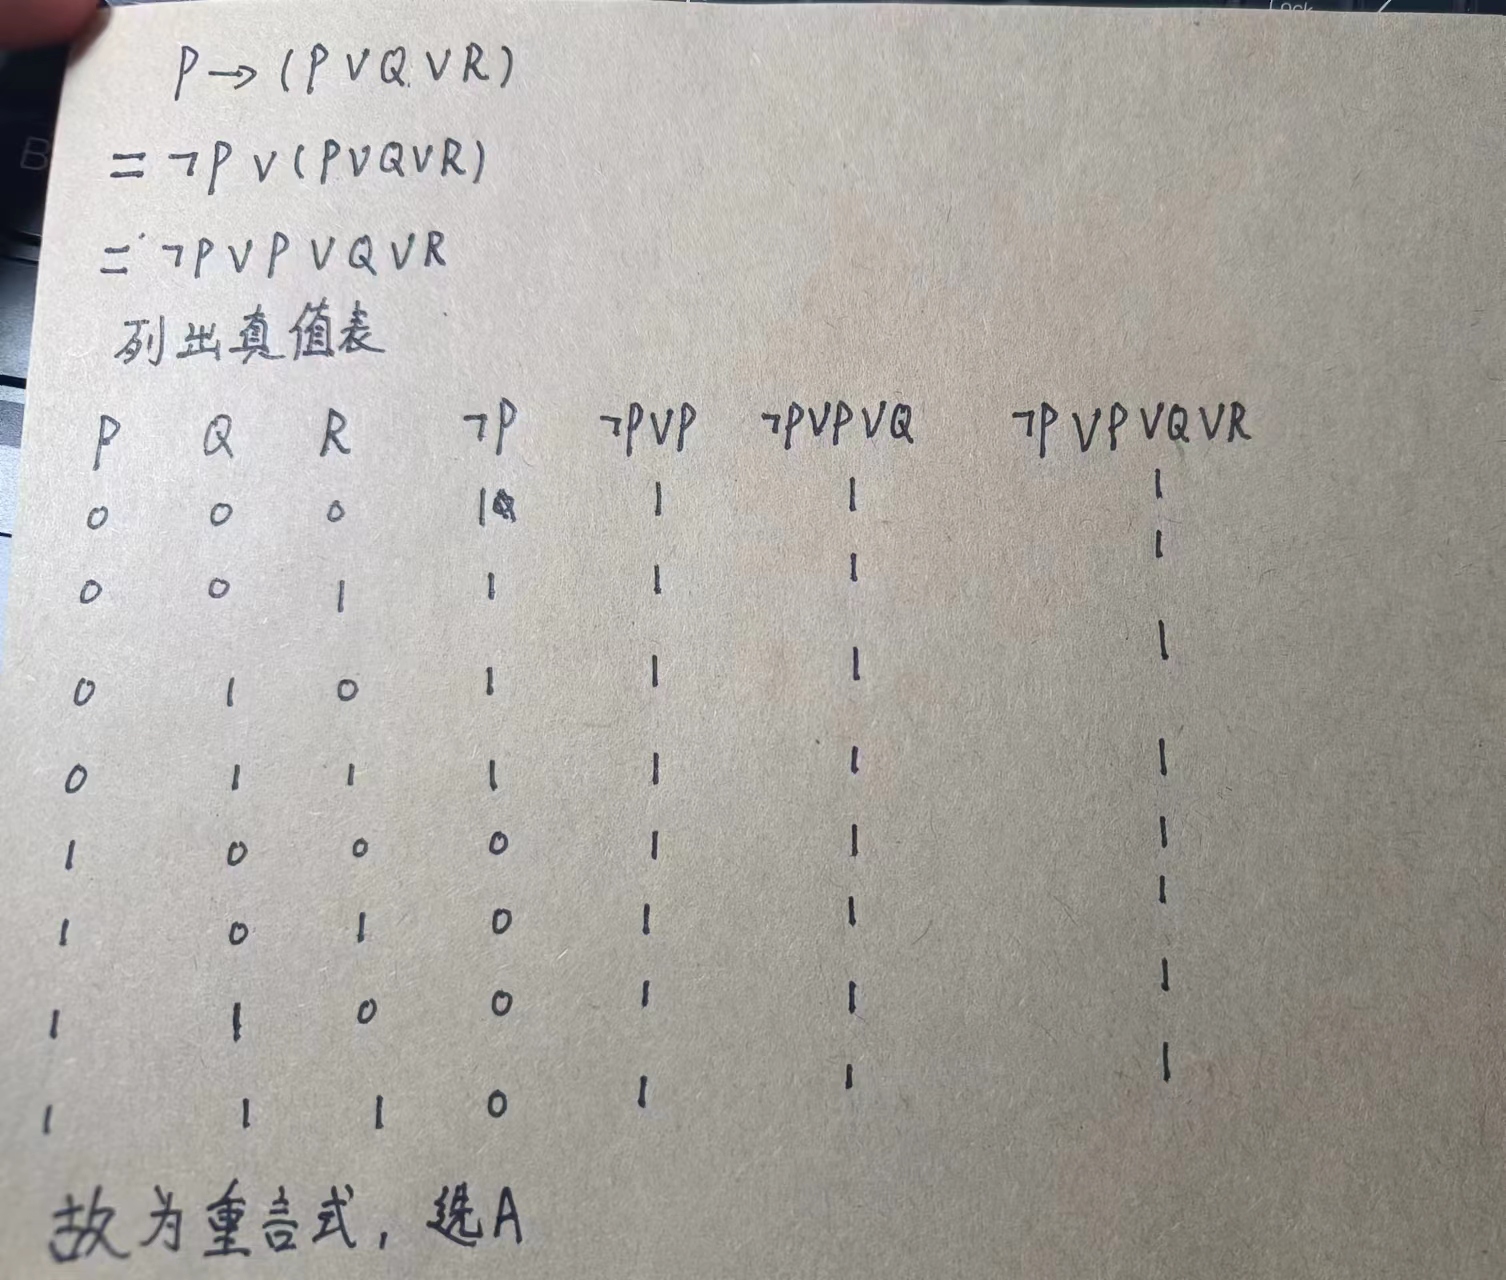 P→(P∨Q∨R)
=¬P∨(P∨Q∨R)
=¬P∨P∨Q∨R
列出真值表
P Q R ¬P ¬P∨P ¬P∨P∨Q ¬P∨P∨Q∨R
0 0 0 1 1 1 1
0 0 1 1 1 1 1
0 1 0 1 1 1 1
0 1 1 1 1 1 1
1 0 0 0 1 1 1
1 0 1 0 1 1 1
1 1 0 0 1 1 1
1 1 1 0 1 1 1
故为重言式,选A